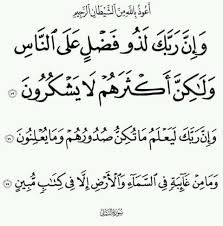 أَعُوذُ بِاللَّهِ مِنَ الشَّيْطَانِ الرَّجِيمِ
وَإِنَّ رَبَّكَ لَذُو فَضْلٍ عَلَى النَّاسِ
وَلَٰكِنَّ أَكْثَرَهُمْ لَا يَشْكُرُونَ ٧٣
وَإِنَّ رَبَّكَ لَيَعْلَمُ مَا تُكِنُّ صُدُورُهُمْ وَمَا يُعْلِنُونَ ٧٤
وَمَا مِنْ غَائِبَةٍ فِي السَّمَاءِ وَالْأَرْضِ إِلَّا فِي كِتَابٍ مُّبِينٍ ٧٥
سُورَةُ النَّمْلِ